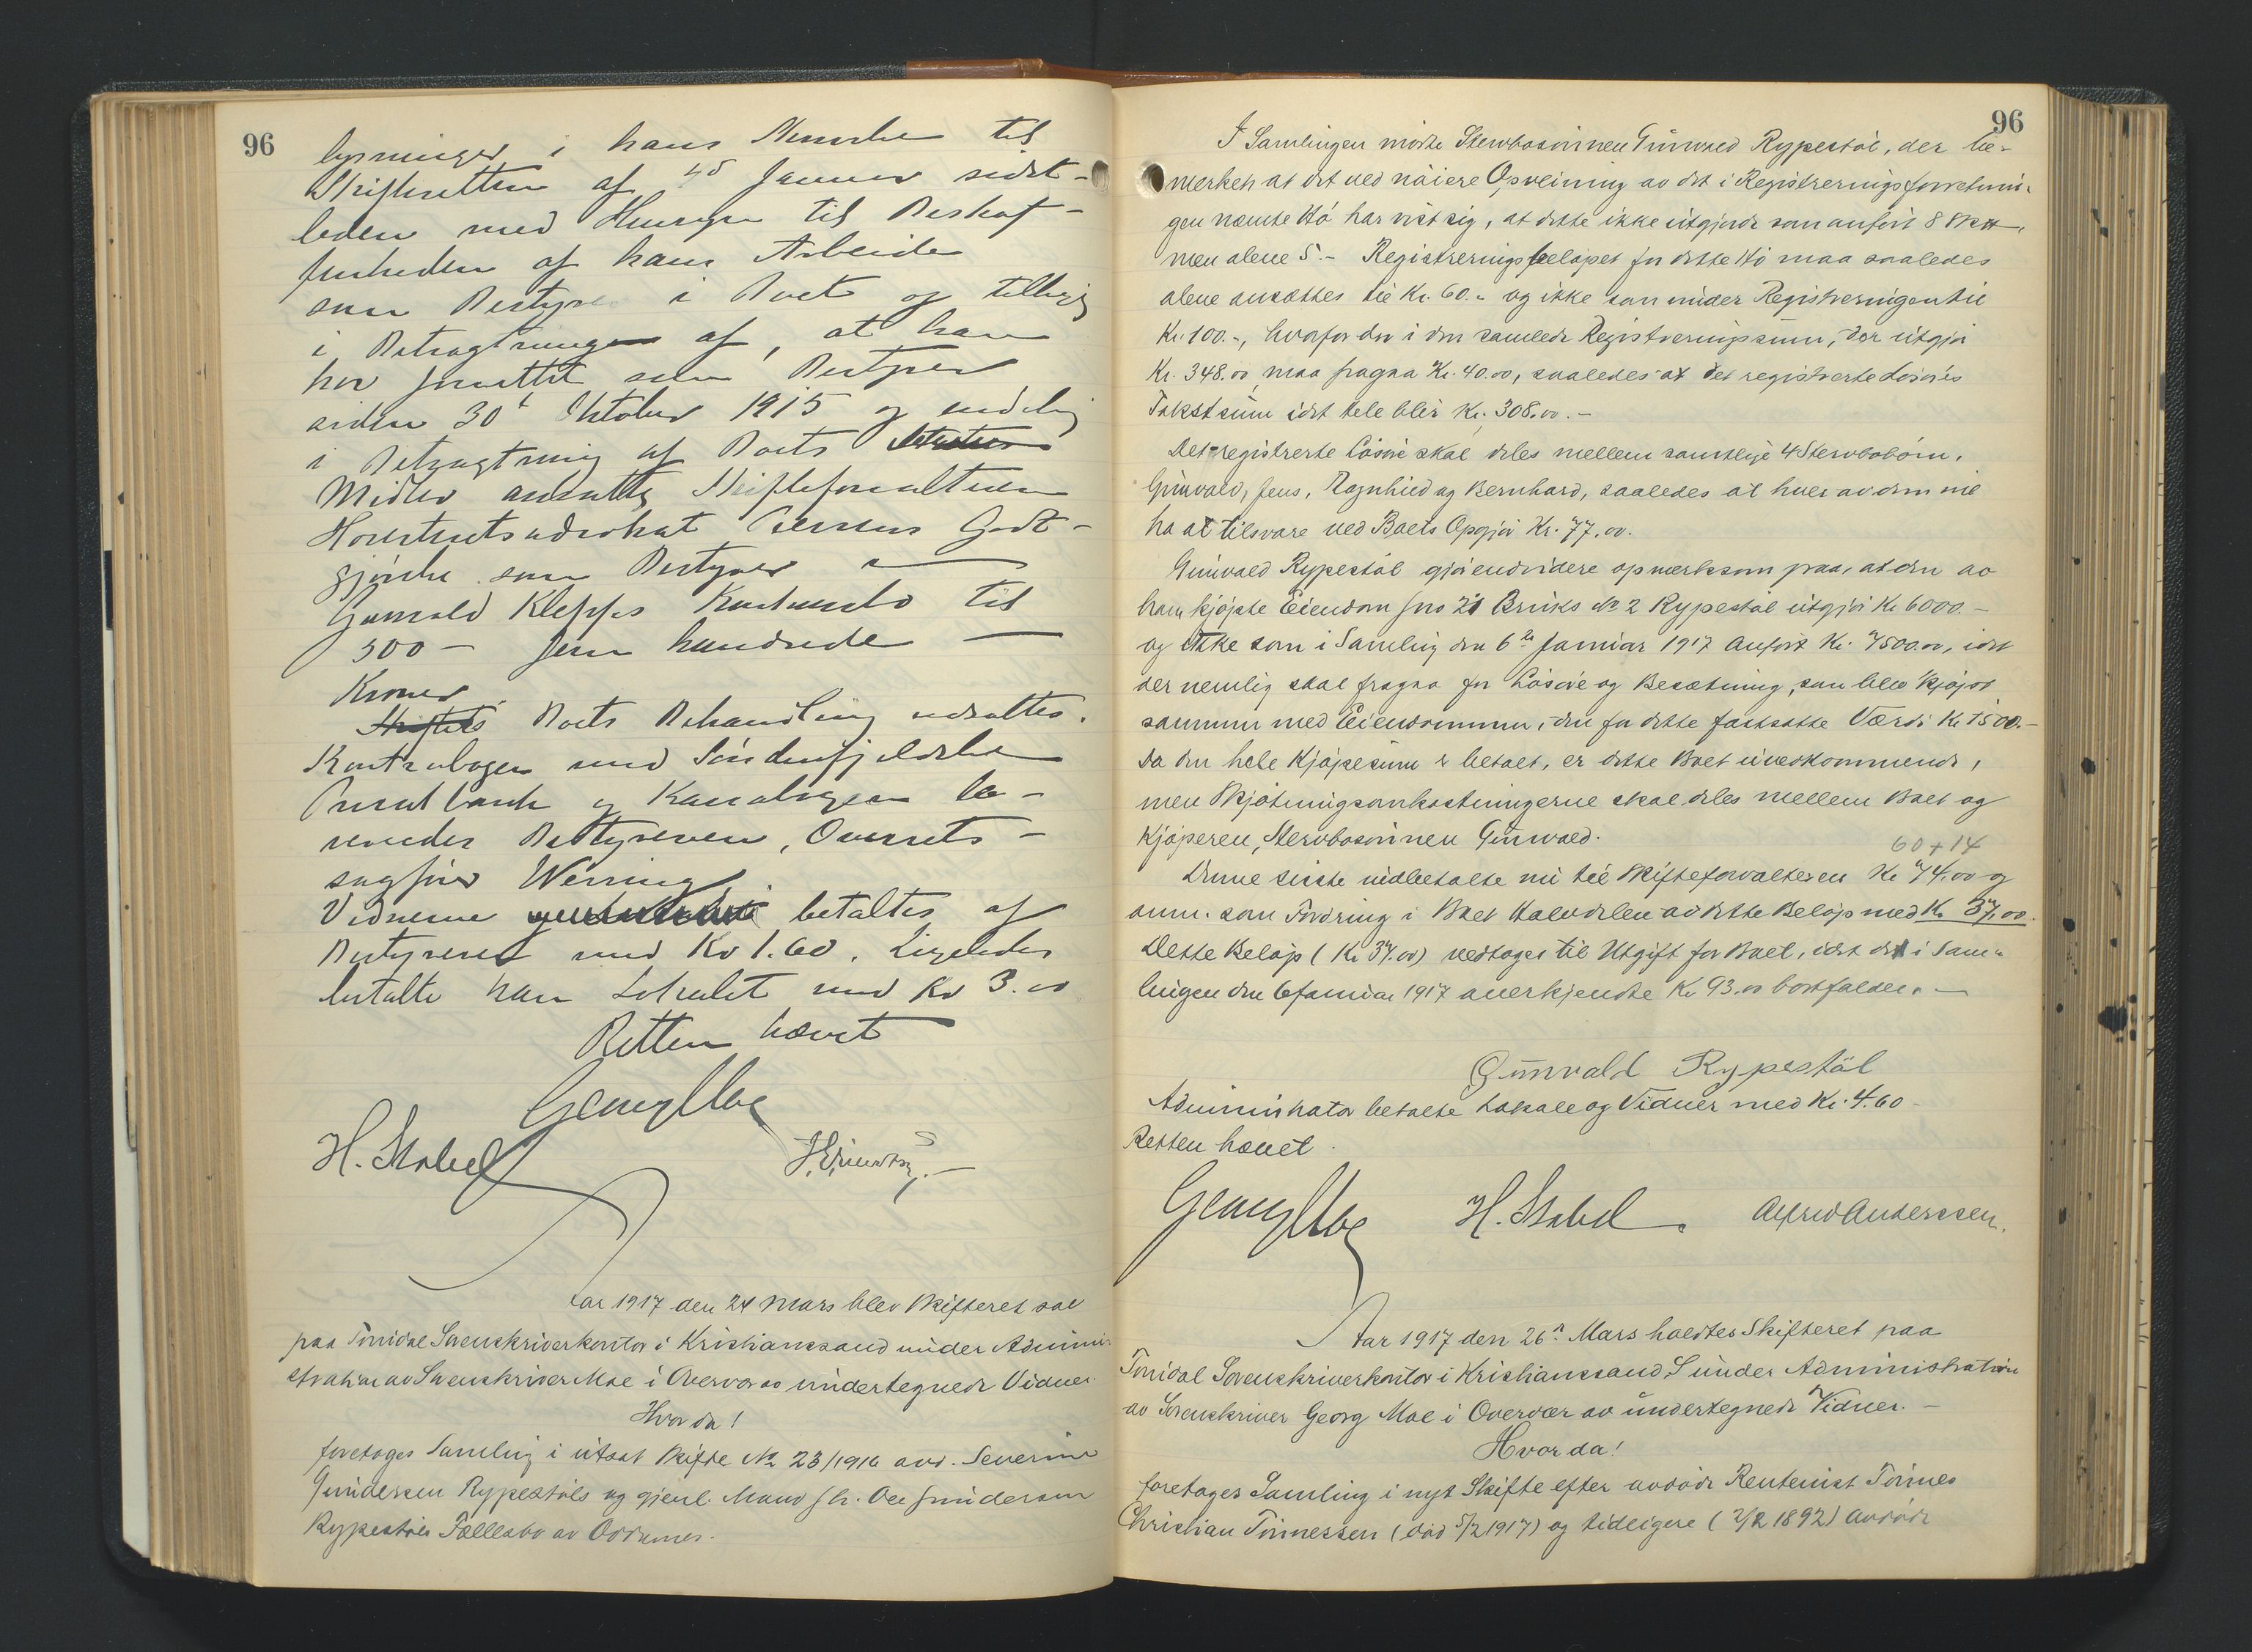 96
lysninger i hans Skrivelse til
Skifteretten af 4d Januar sidst-
leden med Hensyn til Beskaf-
fenheden af hans Arbeide
som Bestyrer i Boet og tillige
i Betragtningen af, at han
har fungeret som Bestyrer
siden 30t Oktober 1915 og endelig
i Betragtning af Boets
Midler ansatte Skifteforvalteren
Høiesteretsadvokat Godt-
gjørelse som Bestyrer
Gunvald Kleppes Konkursbo til
500 – fem hundrede —
Kroner.
Boets Behandling udsattes.
Kontrabogen med Søndenfjeldske
Privatbank og Kassabogen le-
veredes Bestyreren, Overrets-
sagfører Werring
Vidnerne betaltes af
Bestyreren med Kr 1.60. Ligeledes
betalte han Lokalet med Kr 3.00
Retten hævet
Georg Moe
H. Stabel
Aar 1917 den 24 Mars blev Skifteret sat
paa Torridal Sorenskriverkontor i Kristianssand under Admini-
stration av Sorenskriver Moe i Overvær av undertegnede Vidner.
Hvor da!
foretoges Samling i utsat Skifte No 23/1916 avd. Severine
Gundersen Rypestøls og gjenl. Mand Ole Gundersen
Rypestøls Fællesbo av Oddernes.
96
I Samlingen møtte Stervbosønnen Gunvald Rypestøl, der be-
merket at det ved nøiere Opveining av det i Registreringsforretnin-
gen nævnte Hø har vist sig, at dette ikke utgjorde som anført 8
men alene 5.- Registreringsbeløpet for dette Hø maa saaledes
alene ansættes til Kr. 60.- og ikke som under Registreringen til
Kr. 100.-, hvorfor der i den samlede Registreringssum, der utgjør
Kr. 348.00 maa fragaa Kr. 40.00, saaledes at det registrerte Løsøres
Takstsum i det hele blir Kr. 308.00.-
Det registrerte Løsøre skal deles mellem samtlige 4 Stervbobørn,
Gunvald, Jens, Ragnhild og Bernhard, saaledes at hver av dem vil
ha at tilsvare ved Boets Opgjør Kr. 77.00.
Gunvald Rypestøl gjør endvidere opmerksom paa, at den av
ham kjøpte Eiendom Gno 21 Bruks No 2 Rypestøl utgjør Kr 6000.-
og ikke som i Samling den 6te Januar 1917 anført Kr. 7500.00, idet
der nemlig skal fragaa for Løsøre og Besætning, som blev kjøpt
sammen med Eiendommen, den for dette fastsatte Værdi Kr 1500.-
Da den hele Kjøpesum er betalt, er dette Boet uvedkommende,
men Skjøtningsomkostningerne skal deles mellem Boet og
Kjøperen, Stervbosønnen Gunvald.
60 + 14
Denne sidste indbetalte nu til Skifteforvalteren Kr 74.00 og
anm. som Fordring i Boet Halvdelen av dette Beløp med Kr. 37.00.
Dette Beløp (Kr 37.00) vedtoges til Utgift for Boet, idet de i Sam-
lingen den 6 Januar 1917 anerkjendte Kr. 93.00 bortfalder. —
Gunvald Rypestöl
Administrator betalte Lokale og Vidner med Kr. 4.60
Retten hævet.
Georg Moe H. Stabel Alfred Anderssen.
Aar 1917 den 26n Mars holdtes Skifteret paa
Torridal Sorenskriverkontor i Kristianssand S under Administration
av Sorenskriver Georg Moe i Overvær av undertegnede Vidner. –
Hvor da!
foretoges Samling i nyt Skifte efter avdøde Rentenist Tønnes
Christian Tønnessen (død 5/2 1917) og tidligere (2/2 1892) avdøde